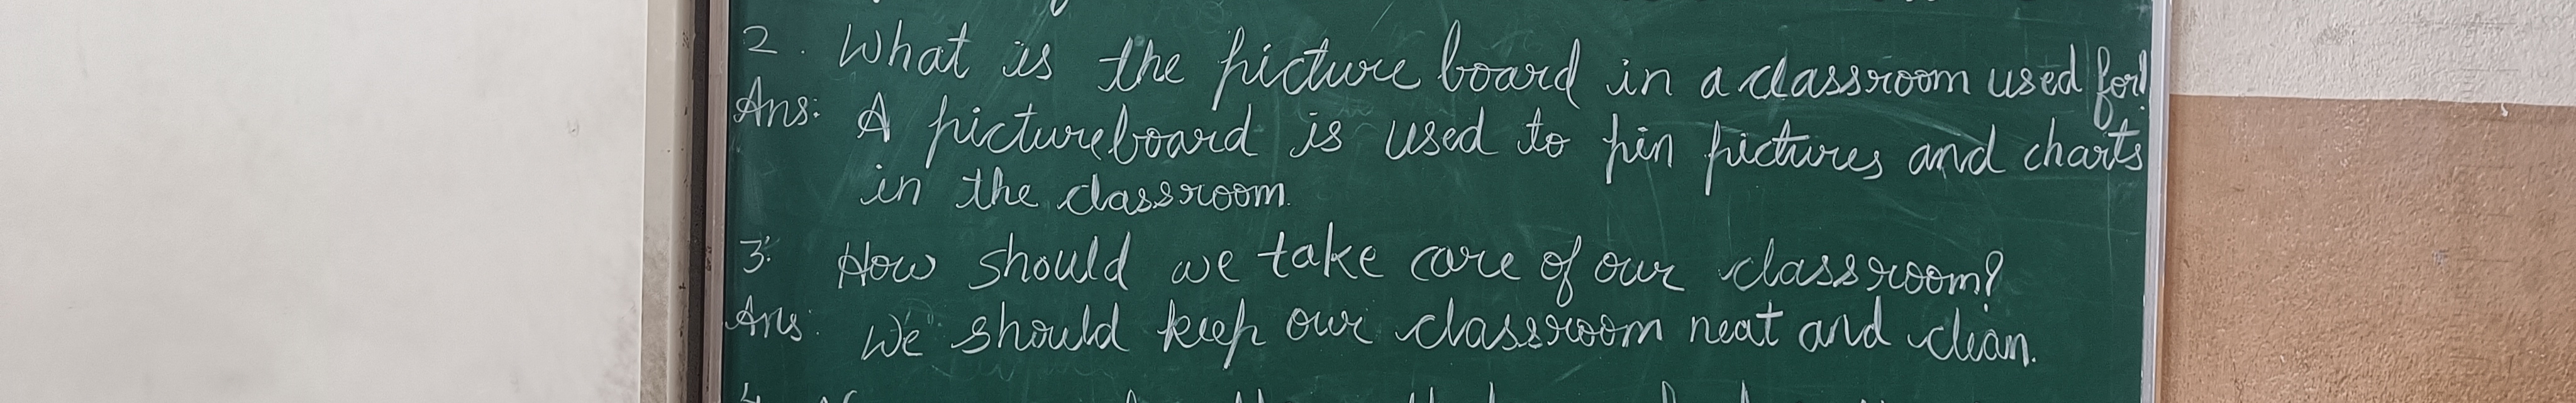 2. What is the picture board in a classroom used for?
Ans: A pictureboard is used to pin pictures and charts
in the classroom.
3. How should we take care of our classroom?
Ans: We should keep our classroom neat and clean.